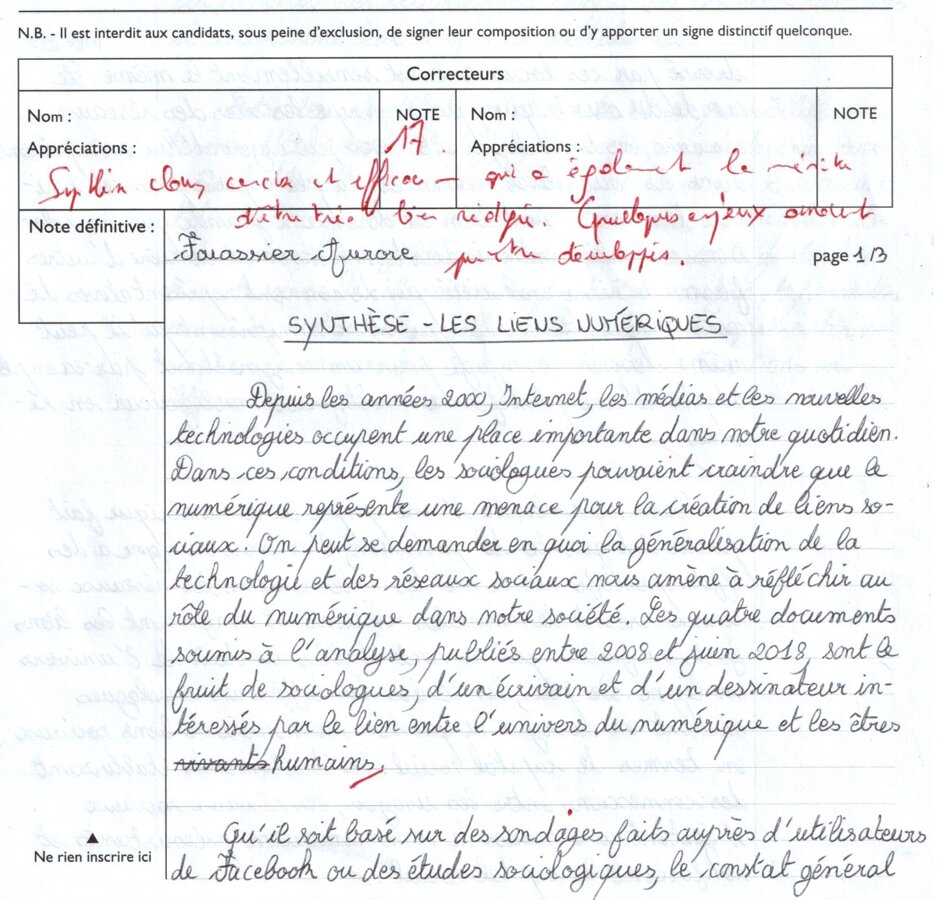 N.B. - Il est interdit aux candidats, sous peine d'exclusion, de signer leur composition ou d'y apporter un signe distinctif quelconque.
Correcteurs
Nom : NOTE Nom : NOTE
17
Appréciations : Appréciations :
claire et efficace qui a également le mérite
d'être très bien rédigée. Quelques enjeux auraient
Note définitive : Fouassier Aurore développés. page 1/3
SYNTHÈSE - LES LIENS NUMERIQUES
Depuis les années 2000, Internet, les médias et les nouvelles
technologies occupent une place importante dans notre quotidien.
Dans ces conditions, les sociologues pouvaient craindre que le
numérique représente une menace pour la création de liens so-
ciaux. On peut se demander en quoi la généralisation de la
technologie et des réseaux sociaux nous amène à réfléchir au
rôle du numérique dans notre société. Les quatre documents
soumis à l'analyse, publiés entre 2008 et juin 2018, sont le
fruit de sociologues, d'un écrivain et d'un dessinateur in-
téressés par le lien entre l'univers du numérique et les êtres
vivants humains.
Qu'il soit basé sur des sondages faits auprès d'utilisateurs
Ne rien inscrire ici
de Facebook ou des études sociologiques, le constat général